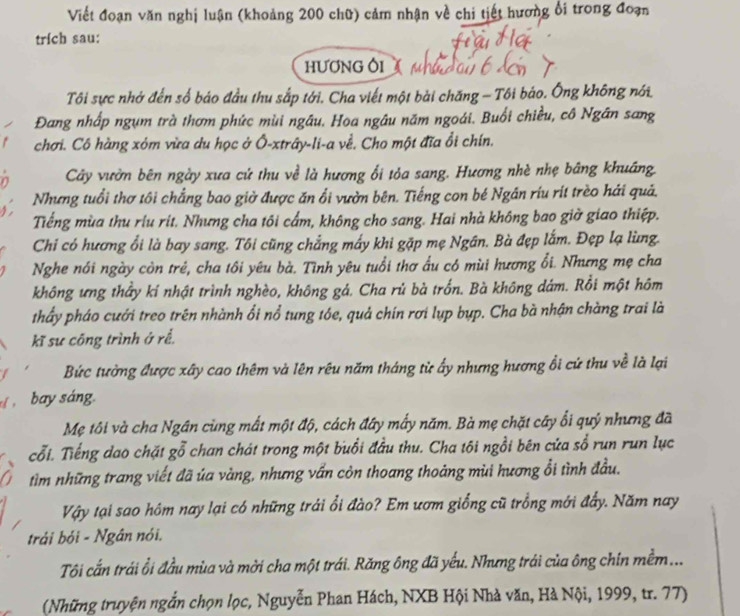 Viết đoạn văn nghị luận (khoảng 200 chữ) cảm nhận về chi tiết hương ổi trong đoạn
trích sau:
HƯƠNG ỔI
Tôi sực nhớ đến số báo đầu thu sắp tới. Cha viết một bài chăng – Tôi bảo. Ông không nói.
Đang nhấp ngụm trà thơm phức mùi ngâu. Hoa ngâu năm ngoái. Buổi chiều, cô Ngân sang
chơi. Cô hàng xóm vừa du học ở Ô-xtrây-li-a về. Cho một đĩa ổi chín.
Cây vườn bên ngày xưa cứ thu về là hương ổi tỏa sang. Hương nhè nhẹ bâng khuâng.
Nhưng tuổi thơ tôi chẳng bao giờ được ăn ổi vườn bên. Tiếng con bé Ngân ríu rít trèo hái quả.
Tiếng mùa thu ríu rít. Nhưng cha tôi cấm, không cho sang. Hai nhà không bao giờ giao thiệp.
Chỉ có hương ổi là bay sang. Tôi cũng chẳng mấy khi gặp mẹ Ngân. Bà đẹp lắm. Đẹp lạ lùng.
Nghe nói ngày còn trẻ, cha tôi yêu bà. Tình yêu tuổi thơ ấu có mùi hương ổi. Nhưng mẹ cha
không ưng thầy kí nhật trình nghèo, không gả. Cha rủ bà trốn. Bà không dám. Rồi một hôm
thấy pháo cưới treo trên nhành ổi nổ tung tóe, quả chín rơi lụp bụp. Cha bà nhận chàng trai là
kĩ sư công trình ở rể.
Bức tường được xây cao thêm và lên rêu năm tháng từ ấy nhưng hương ổi cứ thu về là lại
bay sáng.
Mẹ tôi và cha Ngân cùng mất một độ, cách đây mấy năm. Bà mẹ chặt cây ổi quý nhưng đã
cỗi. Tiếng dao chặt gỗ chan chát trong một buổi đầu thu. Cha tôi ngồi bên cửa sổ run run lục
tìm những trang viết đã úa vàng, nhưng vẫn còn thoang thoảng mùi hương ổi tình đầu.
Vậy tại sao hôm nay lại có những trái ổi đào? Em ươm giống cũ trồng mới đấy. Năm nay
trái bói - Ngân nói.
Tôi cắn trái ổi đầu mùa và mời cha một trái. Răng ông đã yếu. Nhưng trái của ông chín mềm...
(Những truyện ngắn chọn lọc, Nguyễn Phan Hách, NXB Hội Nhà văn, Hà Nội, 1999, tr. 77)